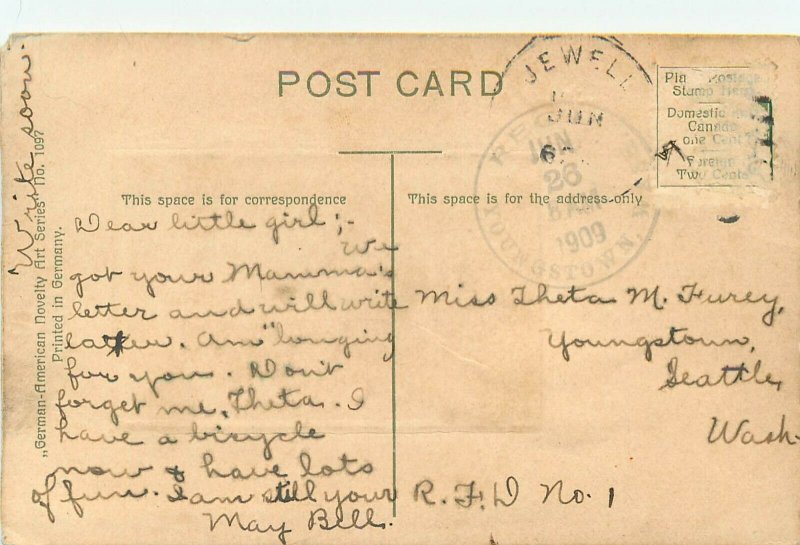 POST CARD
JEWELL
JUN
6
REC'D
JUN
26
8 AM
1909
YOUNGSTOWN,
Postage
Stamp Here
Domestic
Canada
one Cent
Foreign
Two Cents
This space is for correspondence
This space is for the address only
Write soon.
"German-American Novelty Art Series" No. 1097
Printed in Germany.
Dear little girl;-
We
got your Mamma's
letter and will write
later. Am "longing
for you. Don't
forget me, Theta. I
have a bicycle
now & have lots
of fun. I am still your
May Bell.
Miss Theta M. Furey,
Youngstown,
Seattle,
Wash.
R.F.D No. 1